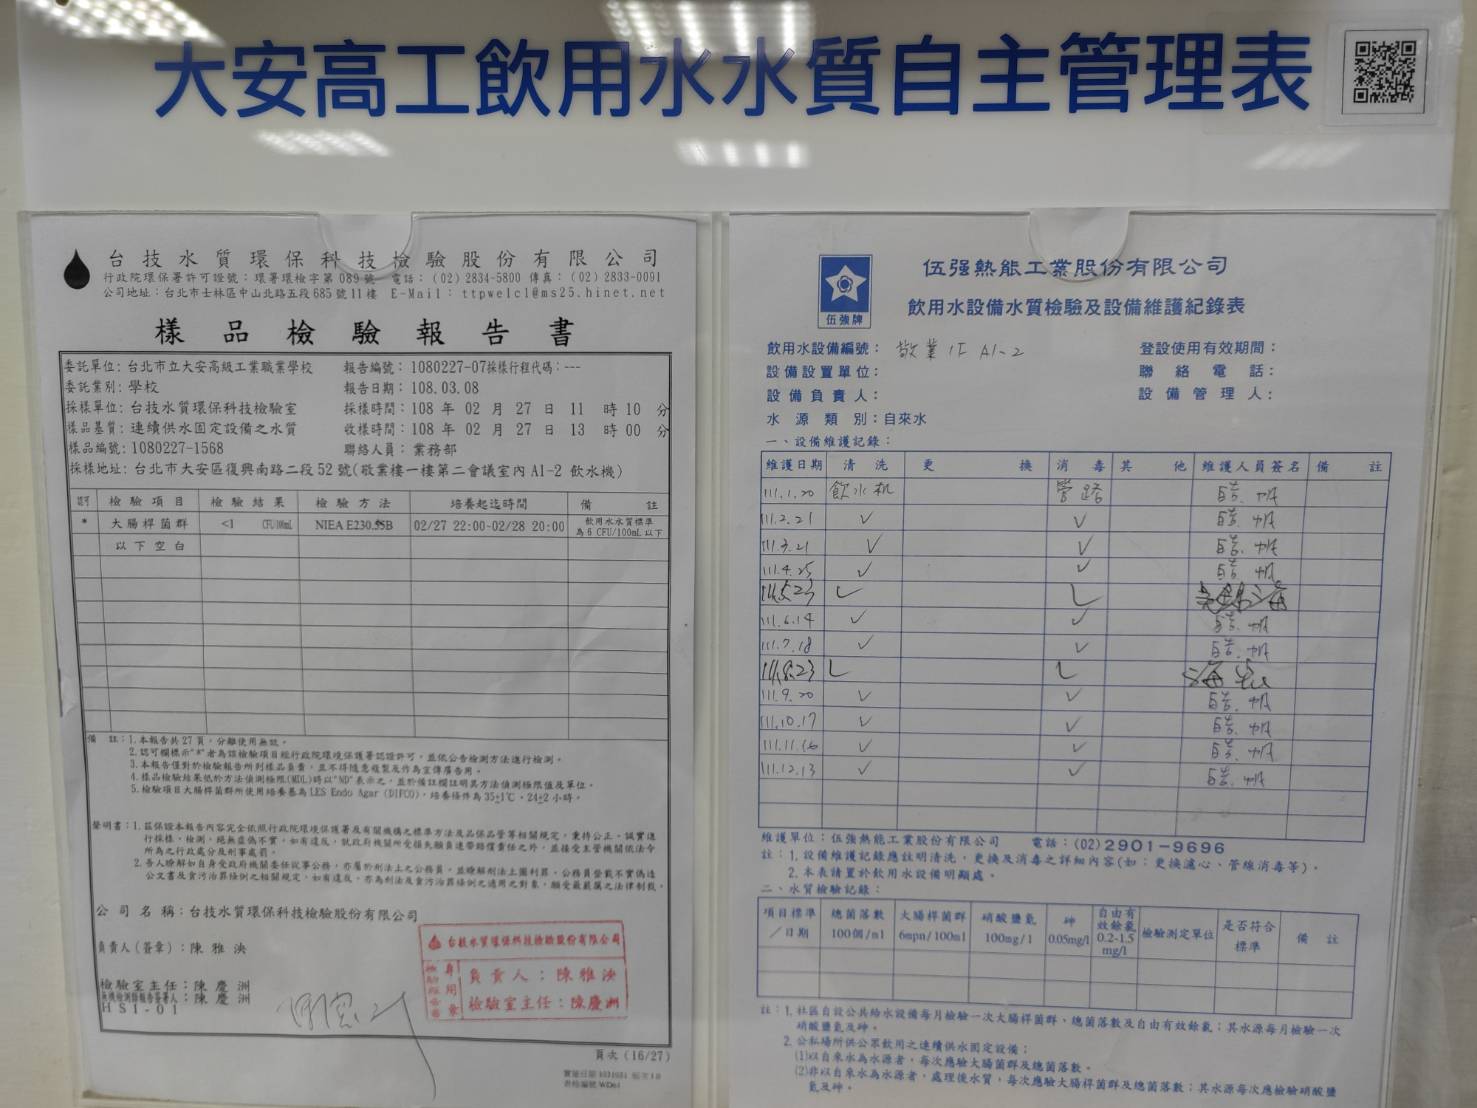 大安高工飲用水水質自主管理表
台技水質環保科技檢驗股份有限公司
行政院環保署許可證號：環署環檢字第089號 電話：(02)2834-5800 傳真：(02)2833-0091
公司地址：台北市士林區中山北路五段685號11樓 E-Mail：ttpwelcl@ms25.hinet.net
樣品檢驗報告書
委託單位：台北市立大安高級工業職業學校 報告編號：1080227-07採樣行程代碼：---
委託業別：學校 報告日期：108.03.08
採樣單位：台技水質環保科技檢驗室 採樣時間：108 年 02 月 27 日 11 時 10 分
樣品基質：連續供水固定設備之水質 收樣時間：108 年 02 月 27 日 13 時 00 分
樣品編號：1080227-1568 聯絡人員：業務部
採樣地址：台北市大安區復興南路二段52號(敬業樓一樓第二會議室內A1-2 飲水機)
認可 檢驗項目 檢驗結果 檢驗方法 培養起迄時間 備註
* 大腸桿菌群 <1 CFU/100mL NIEA E230.55B 02/27 22:00-02/28 20:00 飲用水水質標準
為6 CFU/100mL以下
以下空白
備 註：1.本報告共27頁，分離使用無效。
2.認可欄標示"*"者為該檢驗項目經行政院環境保護署認證許可，並依公告檢測方法進行檢測。
3.本報告僅對於檢驗報告所列樣品負責，且不得隨意複製及作為宣傳廣告用。
4.樣品檢驗結果低於方法偵測極限(MDL)時以"ND"表示之，並於備註欄註明其方法偵測極限值及單位。
5.檢驗項目大腸桿菌群所使用培養基為LES Endo Agar (DIFCO)，培養條件為35±1℃，24±2小時。
聲明書：1.茲保證本報告內容完全依照行政院環境保護署及有關機構之標準方法及品保品管等相關規定，秉持公正、誠實進
行採樣、檢測，絕無虛偽不實，如有違反，就政府機關所受損失願負連帶賠償責任之外，並接受主管機關依法令
所為之行政處分及刑事處罰。
2.吾人瞭解如自身受政府機關委任從事公務，亦屬於刑法上之公務員，並瞭解刑法上圖利罪、公務員登載不實偽造
公文書及貪污治罪條例之相關規定，如有違反，亦為刑法及貪污治罪條例之適用之對象，願受最嚴厲之法律制裁。
公司名稱：台技水質環保科技檢驗股份有限公司
負責人(簽章)：陳雅泱
檢驗室主任：陳慶洲
無機檢測類報告簽署人：陳慶洲
HSI-01
台技水質環保科技檢驗股份有限公司
負責人：陳雅泱
檢驗室主任：陳慶洲
頁次(16/27)
伍強牌
伍強熱能工業股份有限公司
飲用水設備水質檢驗及設備維護紀錄表
飲用水設備編號：敬業1F A1-2 登設使用有效期間：
設備設置單位： 聯絡電話：
設備負責人： 設備管理人：
水源類別：自來水
一、設備維護記錄：
維護日期 清洗 更換 消毒 其他 維護人員簽名 備註
111.1.20 飲水机 管路
111.2.21 ✓ ✓
111.3.21 ✓ ✓
111.4.25 ✓ ✓
111.5.23 ✓ ✓
111.6.14 ✓ ✓
111.7.18 ✓ ✓
111.8.23 ✓ ✓
111.9.20 ✓ ✓
111.10.17 ✓ ✓
111.11.16 ✓ ✓
111.12.13 ✓ ✓
維護單位：伍強熱能工業股份有限公司 電話：(02)2901-9696
註：1.設備維護記錄應註明清洗，更換及消毒之詳細內容(如：更換濾心、管線消毒等)。
2.本表請置於飲用水設備明顯處。
二、水質檢驗記錄：
項目標準／日期 總菌落數100個/ml 大腸桿菌群6mpn/100ml 硝酸鹽氮100mg/l 砷0.05mg/l 自由有效餘氯0.2-1.5mg/l 檢驗測定單位 是否符合標準 備註
註：1.社區自設公共給水設備每月檢驗一次大腸桿菌群、總菌落數及自由有效餘氯；其水源每月檢驗一次
硝酸鹽氮及砷。
2.公私場所供公眾飲用之連續供水固定設備：
(1)以自來水為水源者，每次應驗大腸桿菌群及總菌落數。
(2)非以自來水為水源者，處理後水質，每次應驗大腸桿菌群及總菌落數；其水源每次應檢驗硝酸鹽
氮及砷。